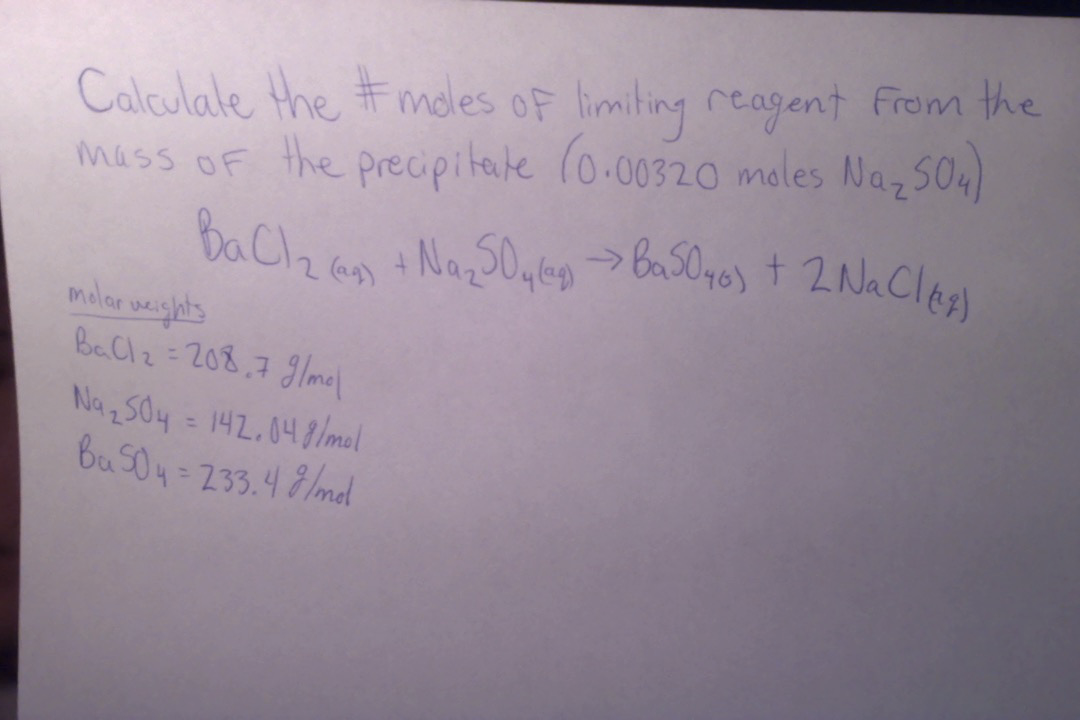 Calculate the # moles of limiting reagent from the
mass of the precipitate (0.00320 moles Na₂SO₄)
BaCl₂ (aq) + Na₂SO₄(aq) → BaSO₄(s) + 2NaCl(aq)
molar weights
BaCl₂ = 208.7 g/mol
Na₂SO₄ = 142.04 g/mol
BaSO₄ = 233.4 g/mol